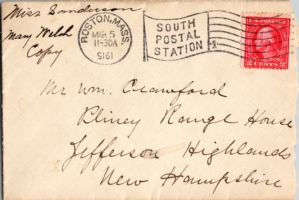 Miss Sanderson
Mary Welch
Copy
BOSTON, MASS.
MAR 5
11-30A
1916
SOUTH
POSTAL
STATION
2 CENTS 2
Mr Wm. Crawford
Pliney Range House
Jefferson Highlands
New Hampshire